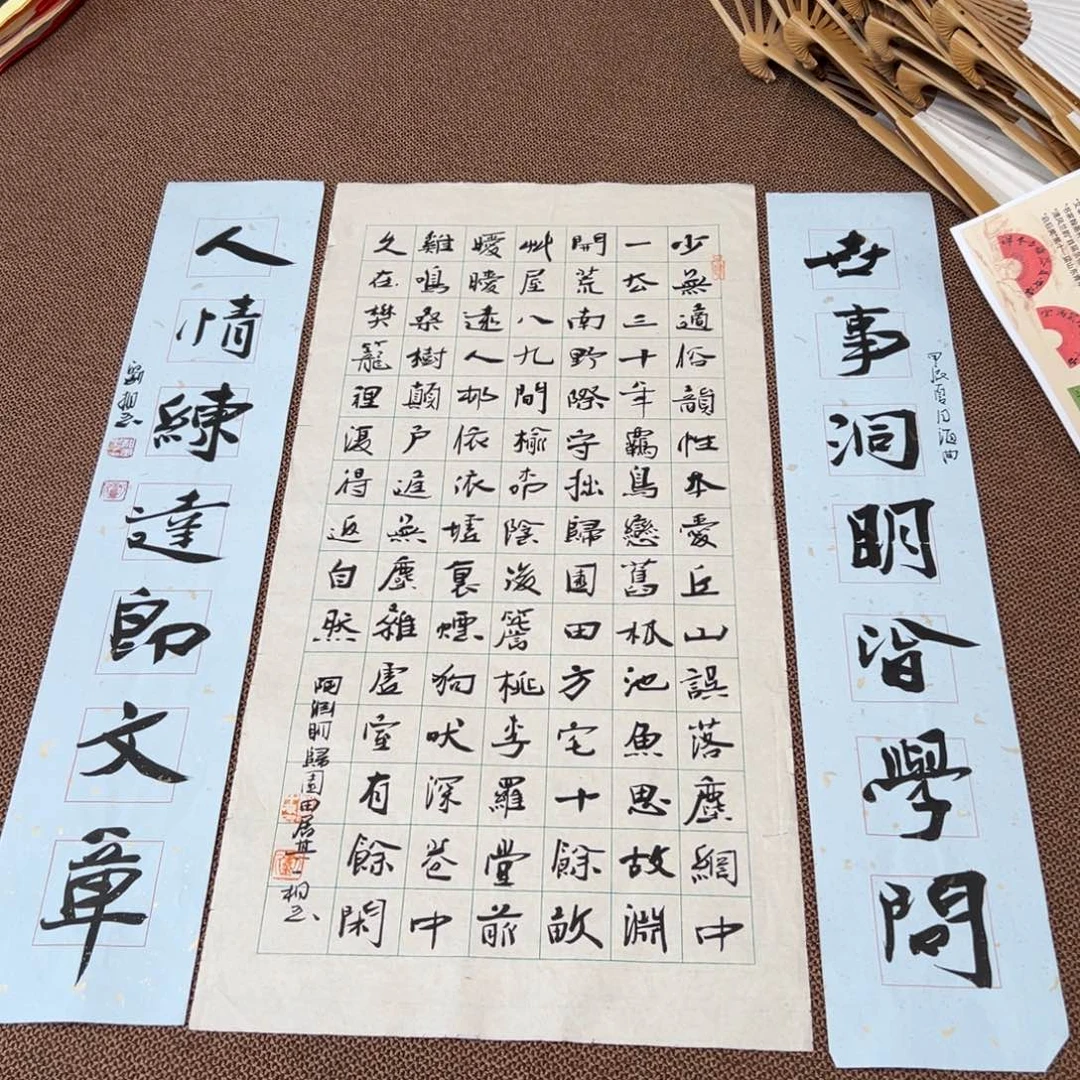 世事洞明皆學問
甲辰夏月海曲
少無適俗韻性本愛丘山誤落塵網中
一去三十年羈鳥戀舊林池魚思故淵
開荒南野際守拙歸園田方宅十餘畝
艸屋八九間榆柳陰後簷桃李羅堂前
曖曖遠人邨依依墟裏煙狗吠深巷中
雞鳴桑樹顛戶庭無塵雜虛室有餘閑
久在樊籠裡復得返自然
陶淵明歸園田居其一
人情練達即文章